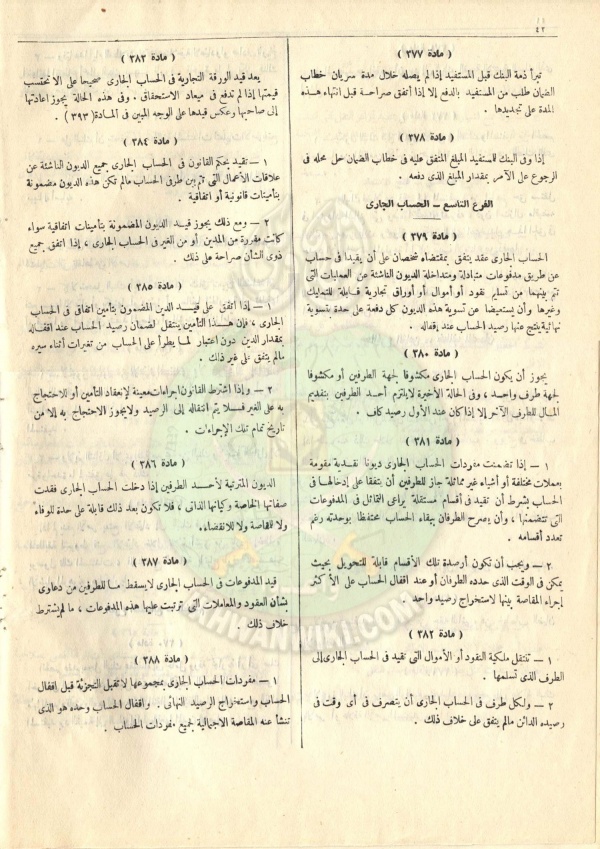 ٤٢
( مادة ٣٧٧ )
تبرأ ذمة البنك قبل المستفيد إذا لم يصله خلال مدة سريان خطاب
الضمان طلب من المستفيد بالدفع إلا إذا أتفق صراحة قبل انتهاء هذه
المدة على تجديدها .
( مادة ٣٧٨ )
إذا وفى البنك للمستفيد المبلغ المتفق عليه فى خطاب الضمان حل محله فى
الرجوع على الآمر بمقدار المبلغ الذى دفعه .
الفرع التاسع ــ الحساب الجارى
( مادة ٣٧٩ )
الحساب الجارى عقد يتفق بمقتضاه شخصان على أن يقيدا فى حساب
عن طريق مدفوعات متبادلة ومتداخلة الديون الناشئة عن العمليات التى
تتم بينهما من تسليم نقود أو أموال أو أوراق تجارية قابلة للتمليك
وغيرها وأن يستعيضا عن تسوية هذه الديون كل دفعة على حدة بتسوية
نهائية ينتج عنها رصيد الحساب عند إقفاله .
( مادة ٣٨٠ )
يجوز أن يكون الحساب الجارى مكشوفا لجهة الطرفين أو مكشوفا
لجهة طرف واحد ، وفى الحالة الأخيرة لا يلتزم أحد الطرفين بتقديم
المال للطرف الآخر إلا إذا كان عند الأول رصيد كاف .
( مادة ٣٨١ )
١ ــ إذا تضمنت مفردات الحساب الجارى ديونا نقدية مقومة
بعملات مختلفة أو أشياء غير متماثلة جاز للطرفين أن يتفقا على إدخالها فى
الحساب بشرط أن تقيد فى أقسام مستقلة يراعى التماثل فى المدفوعات
التى تتضمنها ، وأن يصرح الطرفان ببقاء الحساب محتفظا بوحدته رغم
تعدد أقسامه .
٢ ــ ويجب أن تكون أرصدة تلك الأقسام قابلة للتحويل بحيث
يمكن فى الوقت الذى حدده الطرفان أو عند اقفال الحساب على الأكثر
إجراء المقاصة بينها لاستخراج رصيد واحد .
( مادة ٣٨٢ )
١ ــ تنتقل ملكية النقود أو الأموال التى تقيد فى الحساب الجارى إلى
الطرف الذى تسلمها .
٢ ــ ولكل طرف فى الحساب الجارى أن يتصرف فى أى وقت فى
رصيده الدائن ما لم يتفق على خلاف ذلك .
( مادة ٣٨٣ )
يعد قيد الورقة التجارية فى الحساب الجارى صحيحا على الا تحتسب
قيمتها إذا لم تدفع فى ميعاد الاستحقاق . وفى هذه الحالة يجوز اعادتها
إلى صاحبها وعكس قيدها على الوجه المبين فى المادة ( ٣٩٣ ) .
( مادة ٣٨٤ )
١ ــ تقيد بحكم القانون فى الحساب الجارى جميع الديون الناشئة عن
علاقات الأعمال التى تتم بين طرفى الحساب ما لم تكن هذه الديون مضمونة
بتأمينات قانونية أو اتفاقية .
٢ ــ ومع ذلك يجوز قيد الديون المضمونة بتأمينات اتفاقية سواء
كانت مقررة من المدين أو من الغير فى الحساب الجارى ، إذا اتفق جميع
ذوى الشأن صراحة على ذلك .
( مادة ٣٨٥ )
١ ــ إذا اتفق على قيد الدين المضمون بتأمين اتفاقى فى الحساب
الجارى ، فإن هذا التأمين ينتقل لضمان رصيد الحساب عند اقفاله
بمقدار الدين دون اعتبار لما يطرأ على الحساب من تغيرات أثناء سيره
ما لم يتفق على غير ذلك .
٢ ــ وإذا اشترط القانون اجراءات معينة لإنعقاد التأمين أو للاحتجاج
به على الغير فلا يتم انتقاله إلى الرصيد ولا يجوز الاحتجاج به إلا من
تاريخ تمام تلك الإجراءات .
( مادة ٣٨٦ )
الديون المترتبة لأحد الطرفين إذا دخلت الحساب الجارى فقدت
صفاتها الخاصة وكيانها الذاتى ، فلا تكون بعد ذلك قابلة على حدة للوفاء
ولا للمقاصة ولا للانقضاء .
( مادة ٣٨٧ )
قيد المدفوعات فى الحساب الجارى لا يسقط ما للطرفين من دعاوى
بشأن العقود والمعاملات التى ترتبت عليها هذه المدفوعات ، ما لم يشترط
خلاف ذلك .
( مادة ٣٨٨ )
١ ــ مفردات الحساب الجارى بمجموعها لا تقبل التجزئة قبل إقفال
الحساب واستخراج الرصيد النهائى . واقفال الحساب وحده هو الذى
تنشأ عنه المقاصة الاجمالية لجميع مفردات الحساب .